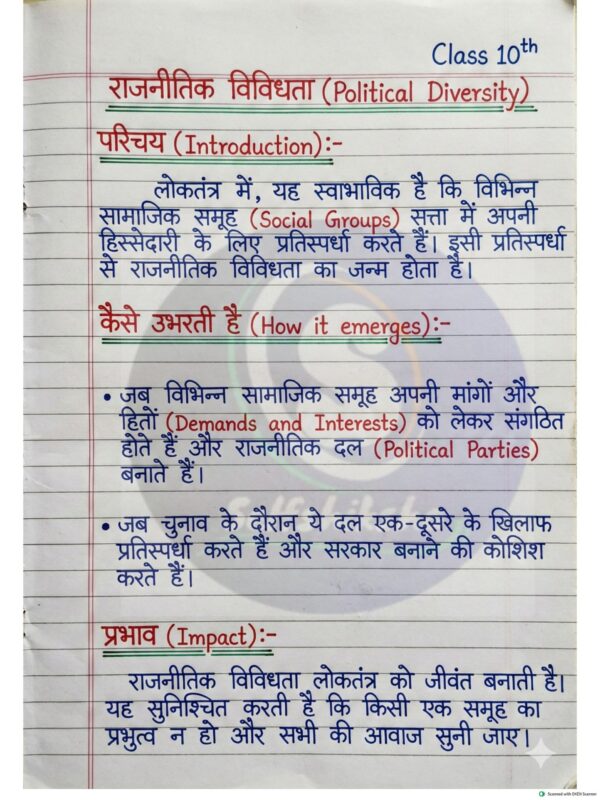 Class 10th
राजनीतिक विविधता (Political Diversity)
परिचय (Introduction):-
लोकतंत्र में, यह स्वाभाविक है कि विभिन्न
सामाजिक समूह (Social Groups) सत्ता में अपनी
हिस्सेदारी के लिए प्रतिस्पर्धा करते हैं। इसी प्रतिस्पर्धा
से राजनीतिक विविधता का जन्म होता है।
कैसे उभरती है (How it emerges):-
• जब विभिन्न सामाजिक समूह अपनी मांगों और
हितों (Demands and Interests) को लेकर संगठित
होते हैं और राजनीतिक दल (Political Parties)
बनाते हैं।
• जब चुनाव के दौरान ये दल एक-दूसरे के खिलाफ
प्रतिस्पर्धा करते हैं और सरकार बनाने की कोशिश
करते हैं।
प्रभाव (Impact):-
राजनीतिक विविधता लोकतंत्र को जीवंत बनाती है।
यह सुनिश्चित करती है कि किसी एक समूह का
प्रभुत्व न हो और सभी की आवाज सुनी जाए।
Scanned with OKEN Scanner